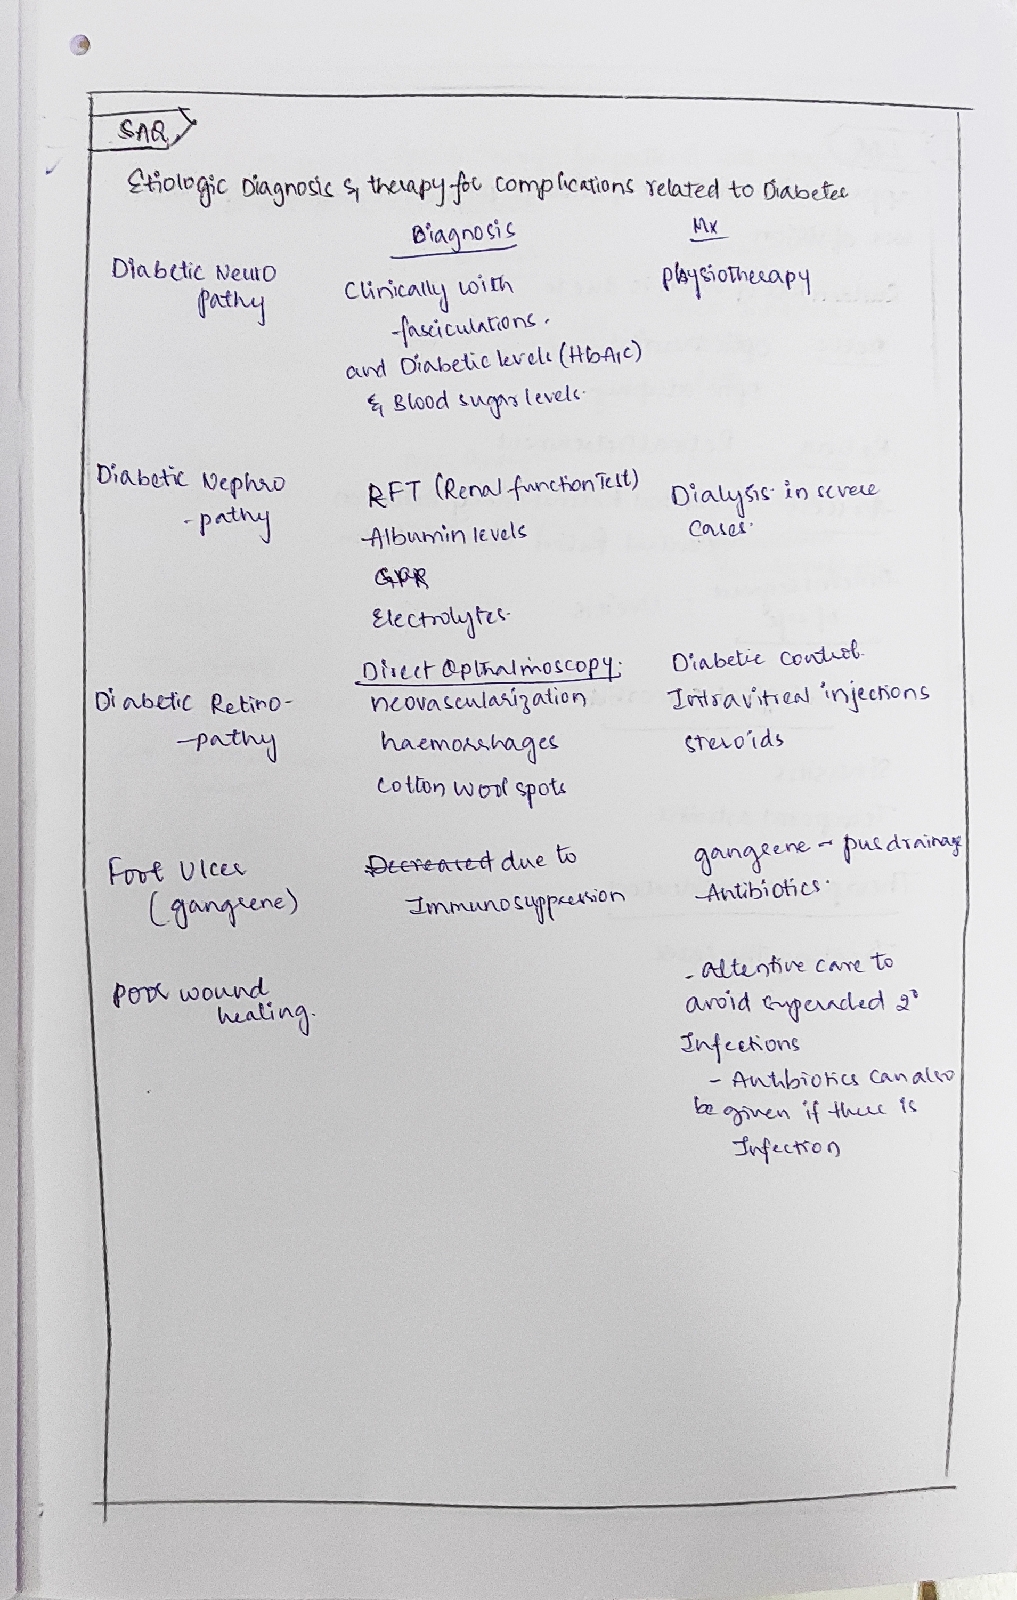 SAQ
Etiologic Diagnosis & therapy for complications related to Diabetes
Diagnosis
Mx
Diabetic Neuro
pathy
Clinically with
fasciculations.
and Diabetic levels (HbA1c)
& Blood sugar levels.
physiotherapy
Diabetic Nephro
-pathy
RFT (Renal function Test)
Albumin levels
Electrolytes.
Dialysis in severe
cases.
Diabetic Retino-
-pathy
Direct Opthalmoscopy:
neovascularization
haemorrhages
Cotton wool spots
Diabetic control.
Intravitreal injections
steroids
Foot Ulcer
(gangrene)
Decreated due to
Immunosuppression
gangrene - pus drainage
Antibiotics.
poor wound
healing.
- attentive care to
avoid 2°
Infections
- Antibiotics can also
be given if there is
Infection